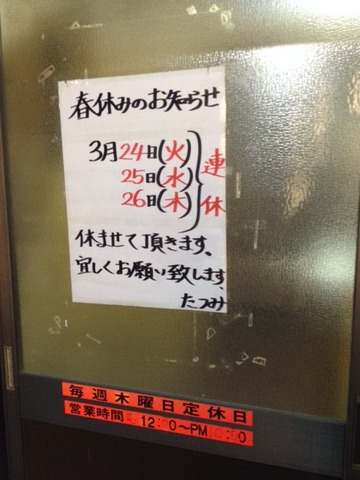 春休みのお知らせ
3月24日(火)
25日(水)
26日(木)
連休
休ませて頂きます。
宜しくお願い致します、
たつみ
毎週木曜日定休日
営業時間 12:00～PM